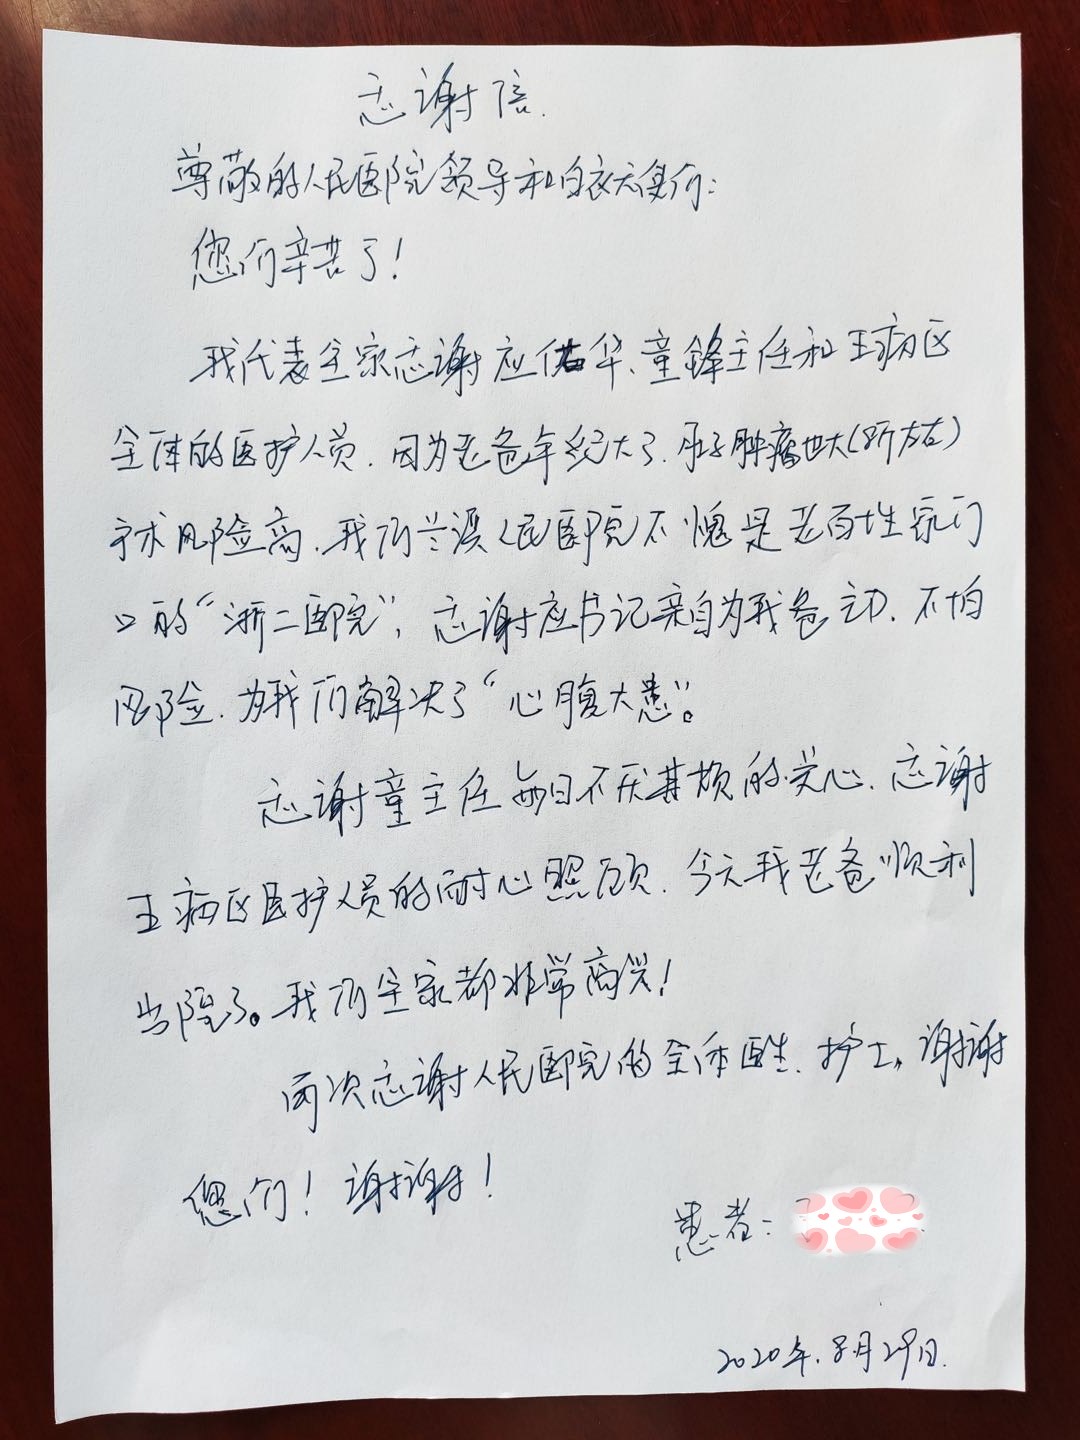 感谢信.
尊敬的人民医院领导和白衣天使们：
您们辛苦了！
我代表全家感谢应佑华、童锋主任和五病区
全体的医护人员.因为老爸年纪大了.肚子肿瘤也大(8斤左右)
手术风险高.我们兰溪人民医院不愧是老百姓家门
口的“浙二医院”，感谢应书记亲自为我爸主刀.不怕
风险.为我们解决了“心腹大患”。
感谢童主任每日不厌其烦的关心.感谢
五病区医护人员的耐心照顾.今天我老爸顺利
出院了。我们全家都非常高兴！
再次感谢人民医院的全体医生.护士，谢谢
您们！谢谢！
患者：
2020年.8月29日.